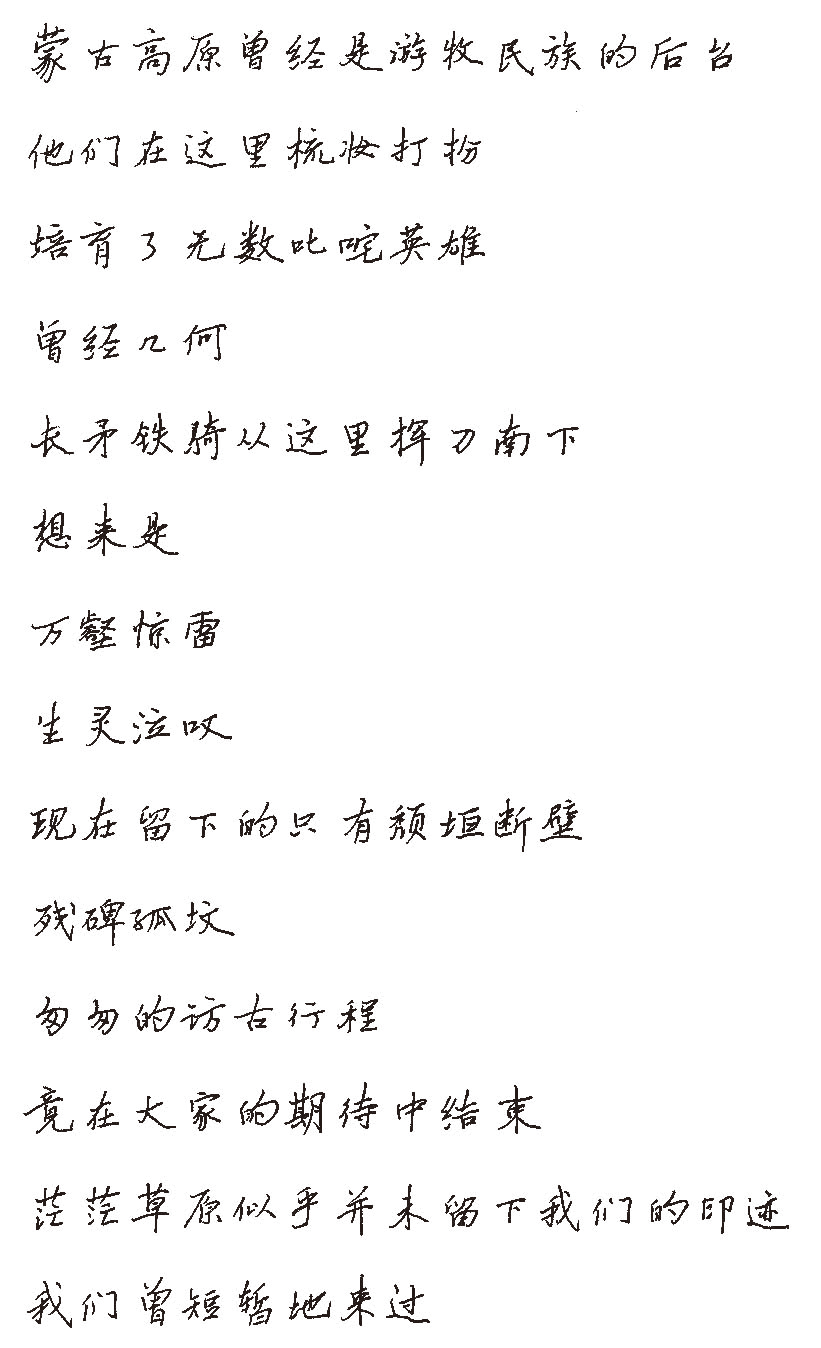 蒙古高原曾经是游牧民族的后台
他们在这里梳妆打扮
培育了无数叱咤英雄
曾经几何
长矛铁骑从这里挥刀南下
想来是
万壑惊雷
生灵泣叹
现在留下的只有颓垣断壁
残碑孤坟
匆匆的访古行程
竟在大家的期待中结束
茫茫草原似乎并未留下我们的印迹
我们曾短暂地来过